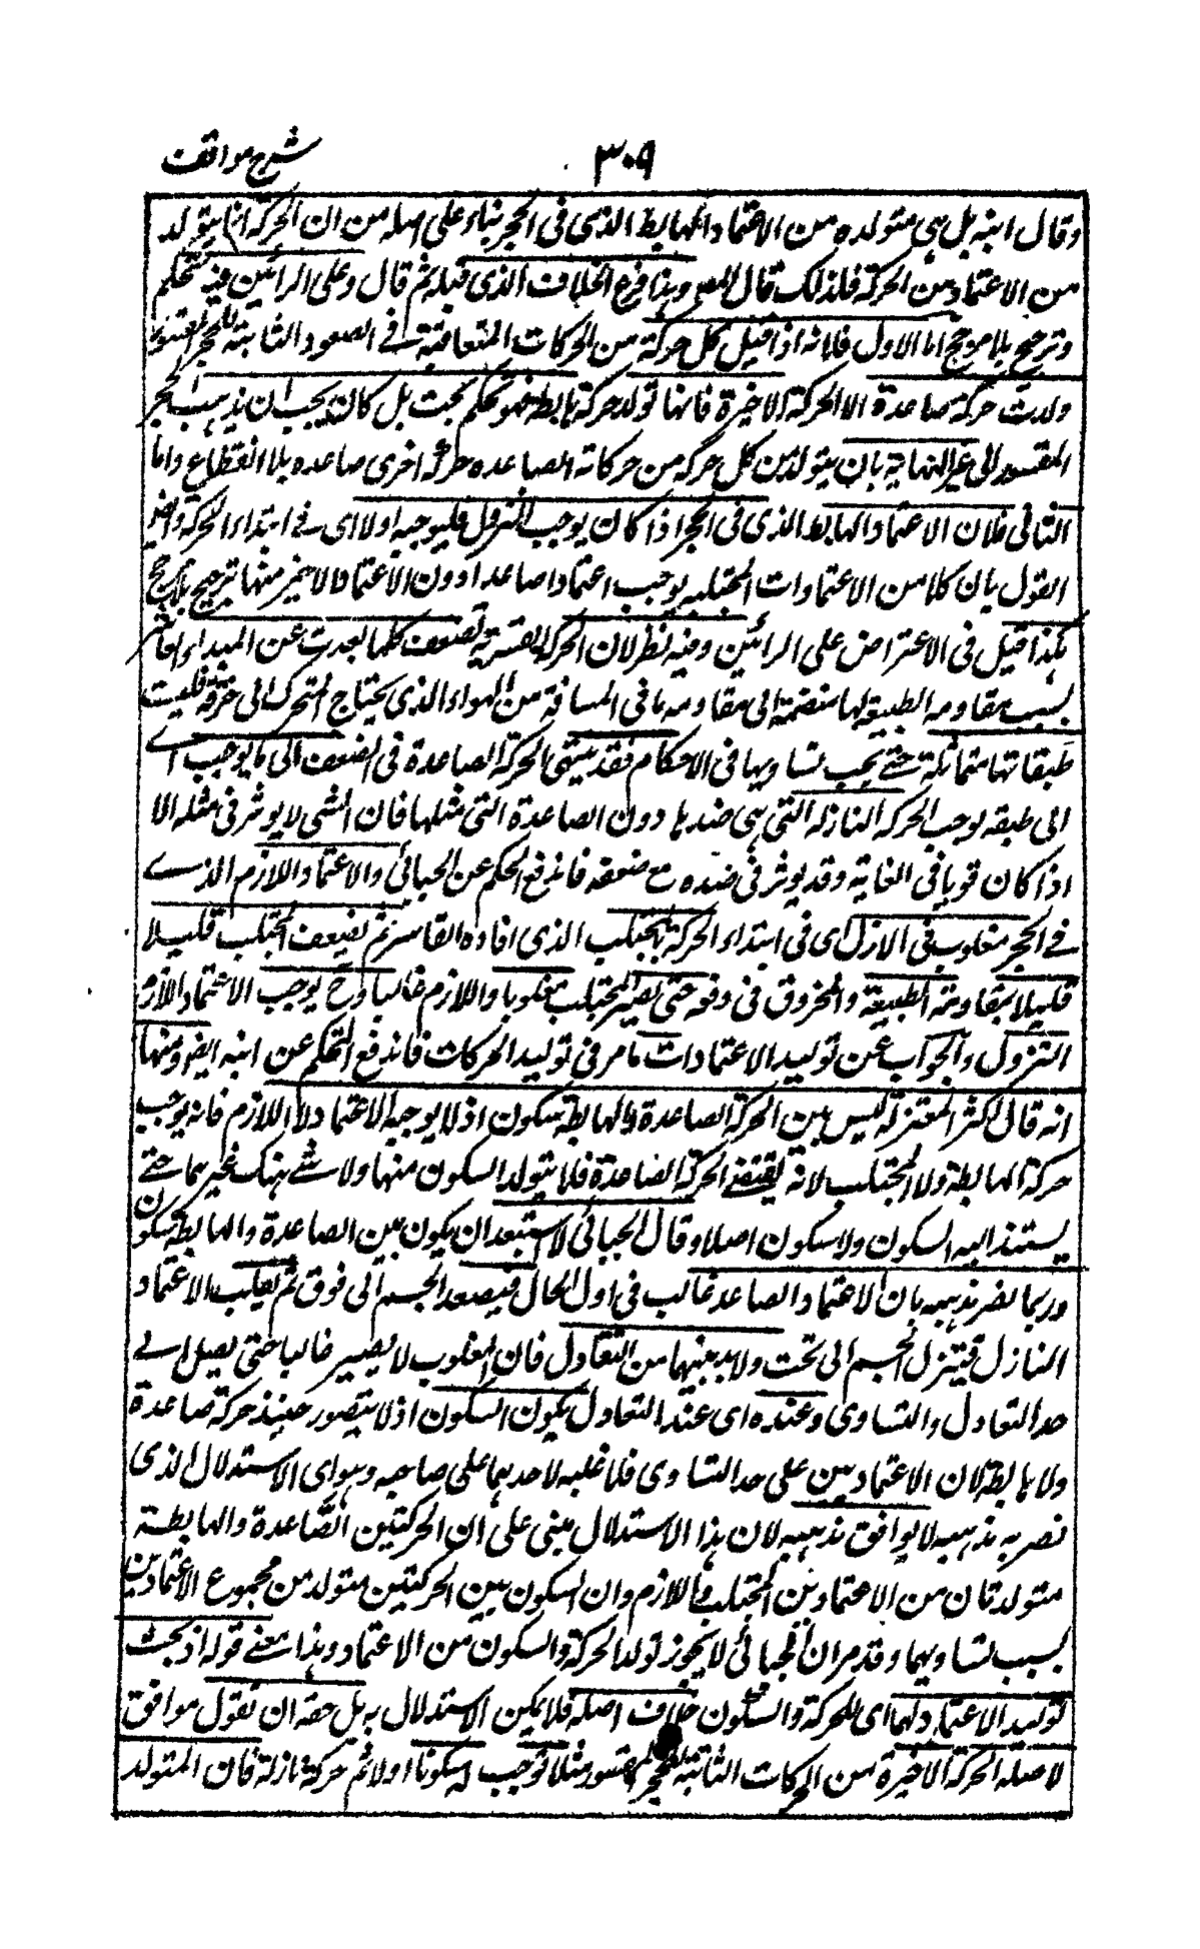 شرح مواقف
٣٠٩
وقال ابنه بل هى متولده من الاعتماد الهابط الذى فى الحجر بناء على اصله من ان الحركة انما يتولد
من الاعتماد من الحركة فلذلك قال المص وهذا فرع الخلاف الذى قبله ثم قال وعلى الرائين فيه تحكم
وترجيح بلا مرجح اما الاول فلانه اذا قيل كل حركة من الحركات المتعاقبة فى الصعود الثابتة للحجر المقسور
ولدت حركة صاعدة الا الحركة الاخيرة فانها تولد حركة هابطة فهو تحكم بحت بل كان يجب ان يذهب الحجر
المقسور الى غير النهاية بان يتولد من كل حركة من حركاته الصاعده حركة اخرى صاعده بلا انقطاع واما
الثانى فلان الاعتماد الهابط الذى فى الحجر اذا كان يوجب النزول فليوجبه اولا اى فى ابتداء الحركة وايضا
القول بان كلا من الاعتمادات المجتلبه يوجب اعتمادا صاعدا دون الاعتماد الاخير منها ترجيح بلا مرجح
هكذا قيل فى الاعتراض على الرائين وفيه نظر لان الحركة القسرية تضعف كلما بعدت عن المبداء القاسر
بسبب مقاومه الطبيعة لها منضمة الى مقاومه ما فى المسافة من الهواء الذى يحتاج المتحرك الى خرقه فليست
طبقاتها متماثلة حتى يجب تساويها فى الاحكام فقد ينتهى الحركة الصاعدة فى الضعف الى ما يوجب اے
الى طبقه يوجب الحركه النازله التى هى ضدها دون الصاعدة التى مثلها فان الشى لا يوثر فى مثله الا
اذا كان قويا فى الغاية وقد يوثر فى ضده مع ضعفه فاندفع الحكم عن الجبائى والاعتماد اللازم الذے
فى الحجر مغلوب فى الازل اى فى ابتداء الحركة بالمجتلب الذى افاده القاسر ثم يضعف المجتلب قليلا
قليلا بمقاومة الطبيعة والمخروق فى دفعه حتى يصير المجتلب مغلوبا واللازم غالبا وح يوجب الاعتماد اللازم
النزول والجواب عن توليد الاعتمادات ما مر فى توليد الحركات فاندفع التحكم عن ابنه ايضا ومنها
انه قال اكثر المعتزلة ليس بين الحركة الصاعدة والهابطة سكون اذ لا يوجبه الاعتماد لا اللازم فانه يوجب
حركة الهابطة ولا المجتلب لانه يقتضى الحركة الصاعدة فلا يتولد السكون منها ولا شے هناك غيرهما حتے
يستند اليه السكون ولا سكون اصلا وقال الجبائى لا استبعد ان يكون بين الصاعدة والهابطة سكون
وربما نصر مذهبه بان الاعتماد الصاعد غالب فى اول الحال فيصعد الجسم الى فوق ثم يغلب الاعتماد
النازل فينزل الجسم الى تحت ولا بد بينهما من التعادل فان المغلوب لا يصير غالبا حتى يصل الے
حد التعادل والتساوى وعنده اى عند التعادل يكون السكون اذ لا يتصور حينئذ حركة صاعدة
ولا هابطة لان الاعتمادين على حد التساوى فلا غلبه لاحدهما على صاحبه وهو اى الاستدلال الذى
نصر به مذهبه لا يوافق مذهبه لان هذا الاستدلال مبنى على ان الحركتين الصاعدة والهابطة
متولدتان من الاعتمادين المجتلب واللازم وان السكون بين الحركتين متولد من مجموع الاعتمادين
بسبب تساويهما وقد مر ان الجبائى لا يجوز تولد الحركة والسكون من الاعتماد وهذا معنے قوله اذ بحث
توليد الاعتماد لهما اى للحركة والسكون خلاف اصله فلا يمكن الاستدلال به بل حقه ان نقول موافق
لاصله الحركة الاخيرة من الحركات الثابتة للحجر المقسور مثلا توجب له سكونا اولا ثم حركة نازلة فان المتولد